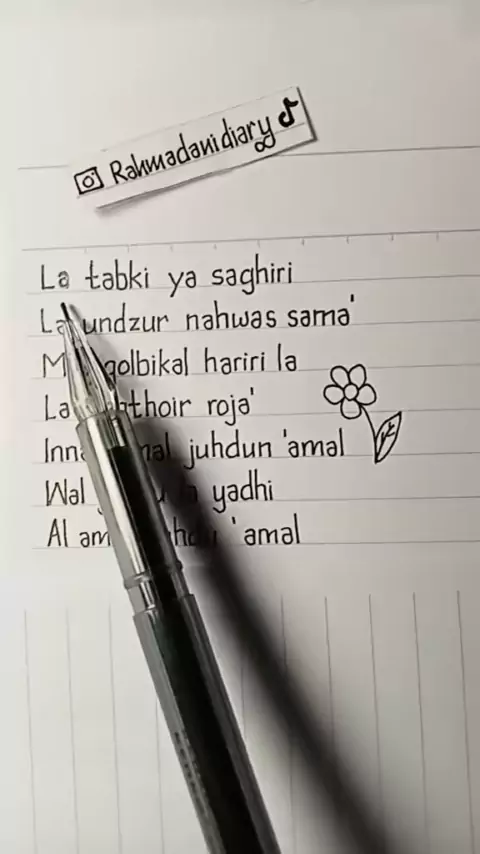 Rahmadanidiary
La tabki ya saghiri
La undzur nahwas sama'
golbikal hariri la
La roja'
juhdun 'amal
Wal yadhi
Al 'amal